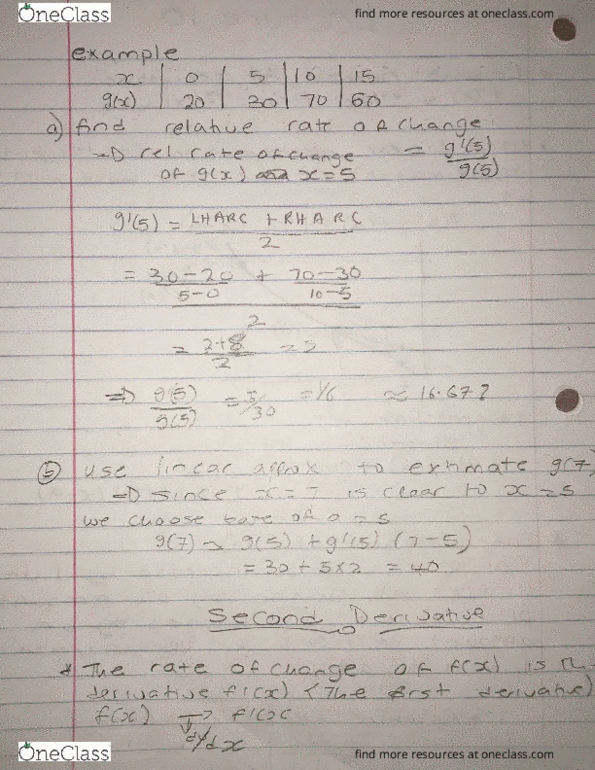 OneClass
find more resources at oneclass.com
example
x | 0 | 5 | 10 | 15
g(x) | 20 | 30 | 70 | 60
a) find relative rate of change
=D rel rate of change = g'(5)/g(5)
of g(x) x=5
g'(5) = LHARC + RHARC
2
= 30-20 + 70-30
5-0 10-5
2
= 2+8 = 5
2
=D g(5) = 5/30 = 1/6 ≈ 16.67
g(5)
b) use linear approx to estimate g(7)
=D since x=7 is closer to x=5
we choose base of a=5
g(7) ~ g(5) + g'(5) (7-5)
= 30 + 5x2 = 40
Second Derivative
* The rate of change of f(x) is th
derivative f'(x) (The first derivative)
f(x) → f'(x
dy/dx
OneClass
find more resources at oneclass.com